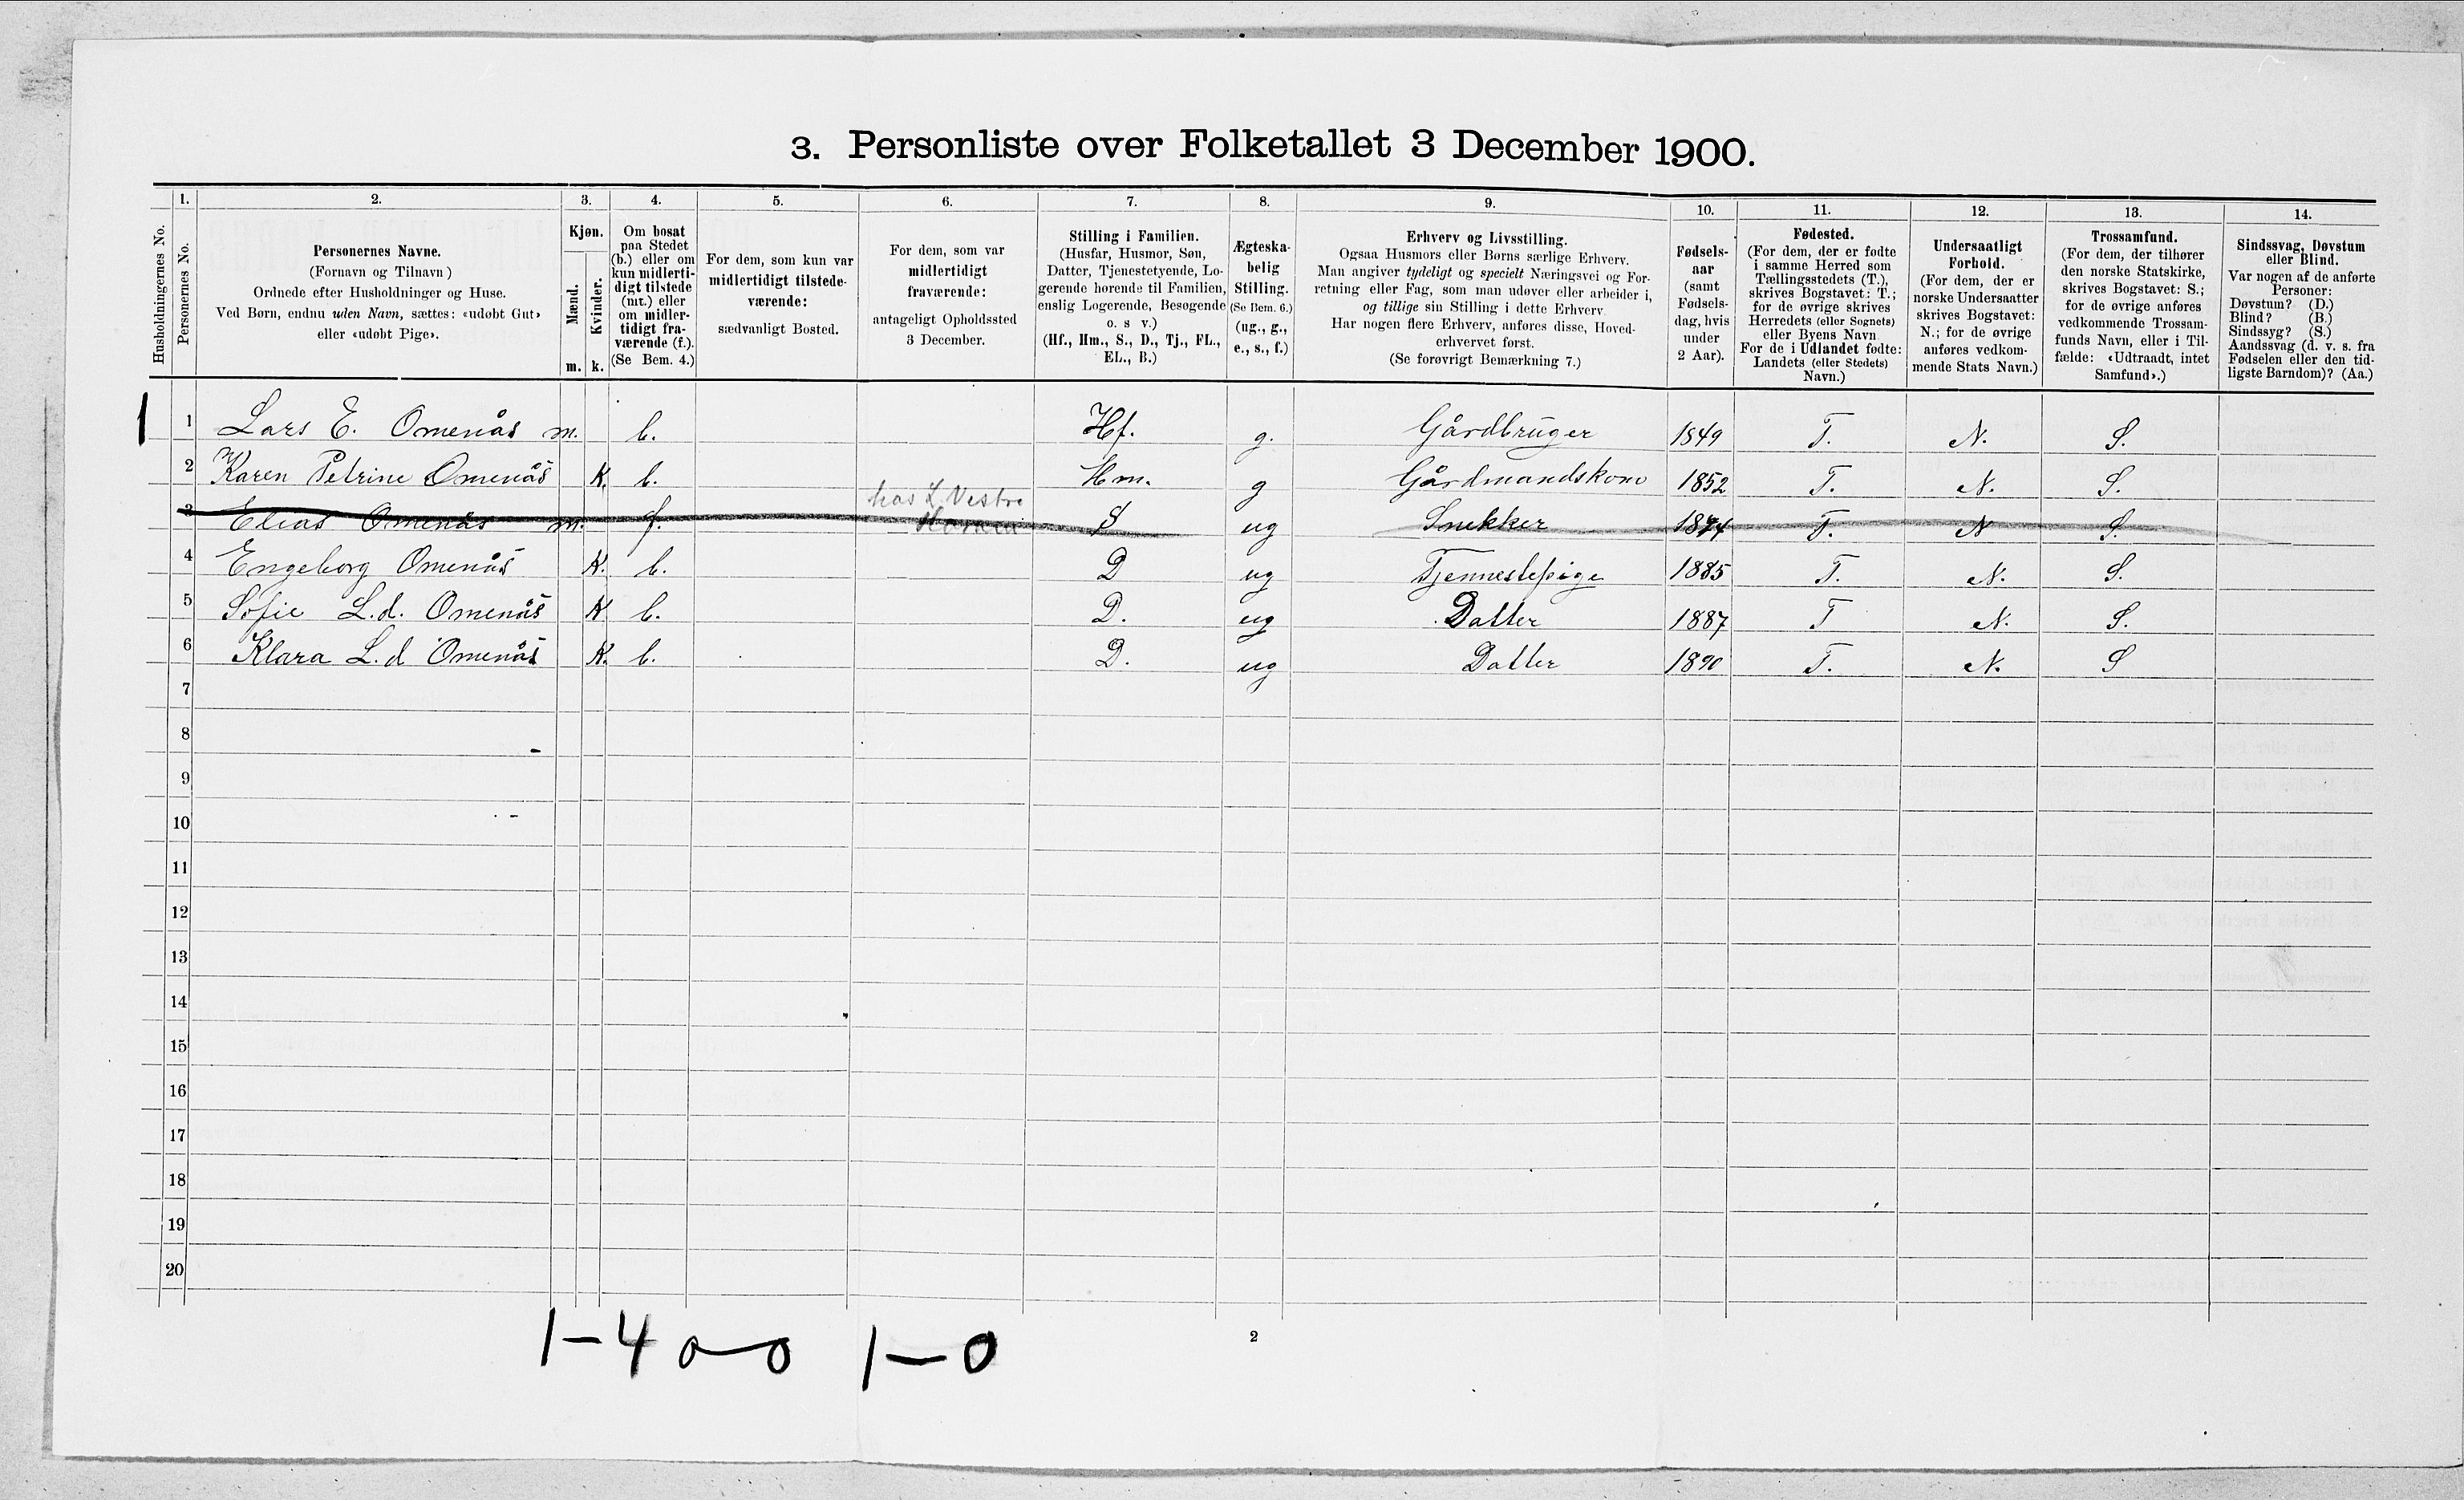 3. Personliste over Folketallet 3 December 1900.
Husholdningernes No.
1. Personernes No.
2. Personernes Navne.
(Fornavn og Tilnavn)
Ordnede efter Husholdninger og Huse.
Ved Børn, endnu uden Navn, sættes: «udøbt Gut»
eller «udøbt Pige».
3. Kjøn.
Mænd. m.
Kvinder. k.
4. Om bosat
paa Stedet
(b.) eller om
kun midlerti-
digt tilstede
(mt.) eller
om midler-
tidigt fra-
værende (f.).
(Se Bem. 4.)
5. For dem, som kun var
midlertidigt tilstede-
værende:
sædvanligt Bosted.
6. For dem, som var
midlertidigt
fraværende:
antageligt Opholdssted
3 December.
7. Stilling i Familien.
(Husfar, Husmor, Søn,
Datter, Tjenestetyende, Lo-
gerende hørende til Familien,
enslig Logerende, Besøgende
o. s v.)
(Hf., Hm., S., D., Tj., FL.,
EL., B.)
8. Ægteska-
belig
Stilling.
(Se Bem. 6.)
(ug., g.,
e., s., f.)
9. Erhverv og Livsstilling.
Ogsaa Husmors eller Børns særlige Erhverv.
Man angiver tydeligt og specielt Næringsvei og For-
retning eller Fag, som man udøver eller arbeider i,
og tillige sin Stilling i dette Erhverv.
Har nogen flere Erhverv, anføres disse, Hoved-
erhvervet først.
(Se forøvrigt Bemærkning 7.)
10. Fødsels-
aar
(samt
Fødsels-
dag, hvis
under
2 Aar).
11. Fødested.
(For dem, der er fødte
i samme Herred som
Tællingsstedets (T.),
skrives Bogstavet: T.;
for de øvrige skrives
Herredets (eller Sognets)
eller Byens Navn
For de i Udlandet fødte:
Landets (eller Stedets)
Navn.)
12. Undersaatligt
Forhold.
(For dem, der er
norske Undersaatter
skrives Bogstavet:
N.; for de øvrige
anføres vedkom-
mende Stats Navn.)
13. Trossamfund.
(For dem, der tilhører
den norske Statskirke,
skrives Bogstavet: S.;
for de øvrige anføres
vedkommende Trossam-
funds Navn, eller i Til-
fælde: «Udtraadt, intet
Samfund».)
14. Sindssvag, Døvstum
eller Blind.
Var nogen af de anførte
Personer:
Døvstum? (D.)
Blind? (B.)
Sindssyg? (S.)
Aandssvag (d. v. s. fra
Fødselen eller den tid-
ligste Barndom)? (Aa.)
1 1 Lars E. Omenås m. b. Hf. g. Gårdbruger 1849 T. N. S.
2 Karen Petrine Omenås K. b. Hm. g Gårdmandskone 1852 T. N. S.
hos L. Vestre
3 Elias Omenås m. f. S ug Snekker 1874 T. N S.
4 Engeborg Omenås K. b. D ug Tjennestepige 1885 T. N. S.
5 Sofie L.d. Omenås K b. D. ug Datter 1887 T N. S.
6 Klara L.d Omenås K. b. D. ug Datter 1890 T. N. S
7
8
9
10
11
12
13
14
15
16
17
18
19
20
1-4 0-0 1-0
2